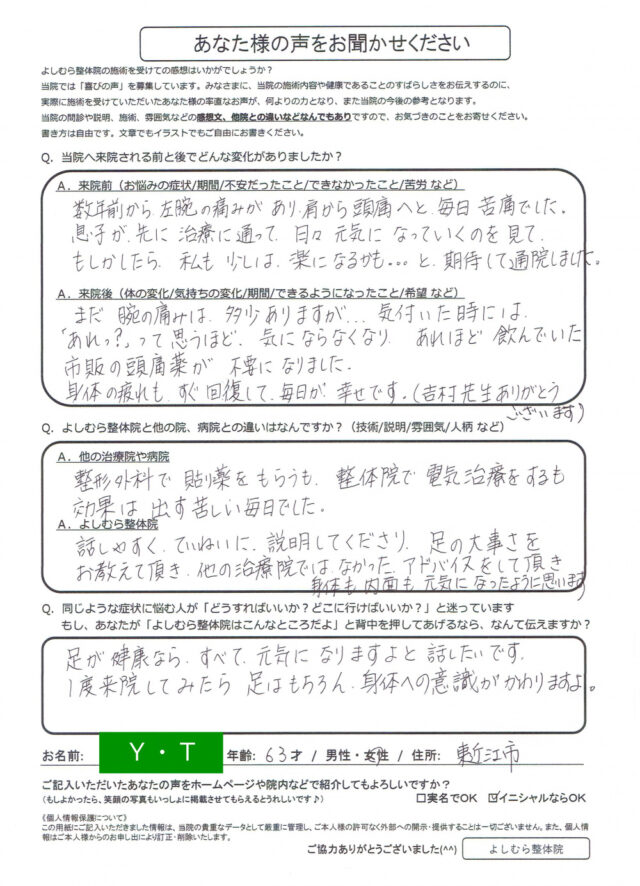 あなた様の声をお聞かせください
よしむら整体院の施術を受けての感想はいかがでしょうか？
当院では「喜びの声」を募集しています。みなさまに、当院の施術内容や健康であることのすばらしさをお伝えするのに、
実際に施術を受けていただいたあなた様の率直なお声が、何よりの力となり、また当院の今後の参考となります。
当院の問診や説明、施術、雰囲気などの感想文、他院との違いなどなんでもありですので、お気づきのことをお寄せください。
書き方は自由です。文章でもイラストでもご自由にお書きください。
Q．当院へ来院される前と後でどんな変化がありましたか？
A．来院前（お悩みの症状/期間/不安だったこと/できなかったこと/苦労 など）
数年前から 左腕の痛みが あり、肩から頭痛へと、毎日 苦痛でした。
息子が、先に 治療に通って、日々 元気に なっていくのを見て、
もしかしたら、私も 少しは、楽になるかも…と、期待して通院しました。
A．来院後（体の変化/気持ちの変化/期間/できるようになったこと/希望 など）
まだ 腕の痛みは、多少ありますが…気付いた時には、
「あれっ？」って 思うほど、気にならなくなり、あれほど 飲んでいた
市販の頭痛薬が 不要になりました。
身体の疲れも、すぐ回復して、毎日が 幸せです。（吉村先生ありがとう
ございます）
Q．よしむら整体院と他の院、病院との違いはなんですか？（技術/説明/雰囲気/人柄 など）
A．他の治療院や病院
整形外科で 貼り薬を もらうも、整体院で 電気治療をするも
効果は 出ず苦しい毎日でした。
A．よしむら整体院
話しやすく、ていねいに、説明してくださり、足の大事さを
お教えて頂き、他の治療院では、なかった、アドバイスをして頂き
身体も内面も 元気になったように思います
Q．同じような症状に悩む人が「どうすればいいか？どこに行けばいいか？」と迷っています
もし、あなたが「よしむら整体院はこんなところだよ」と背中を押してあげるなら、なんて伝えますか？
足が 健康なら、すべて、元気に なりますよと 話したいです。
1度来院してみたら 足はもちろん、身体への意識が かわりますよ。
お名前： Y・T 年齢： 63才 / 男性・女性 / 住所： 東近江市
ご記入いただいたあなたの声をホームページや院内などで紹介してもよろしいですか？
（もしよかったら、笑顔の写真もいっしょに掲載させてもらえるとうれしいです♪） □実名でOK ☑イニシャルならOK
《個人情報保護について》
この用紙にご記入いただきました情報は、当院の貴重なデータとして厳重に管理し、ご本人様の許可なく外部への開示・提供することは一切ございません。また、個人情
報はご本人様からのお申し出により訂正・削除いたします。
ご協力ありがとうございました(^^) よしむら整体院